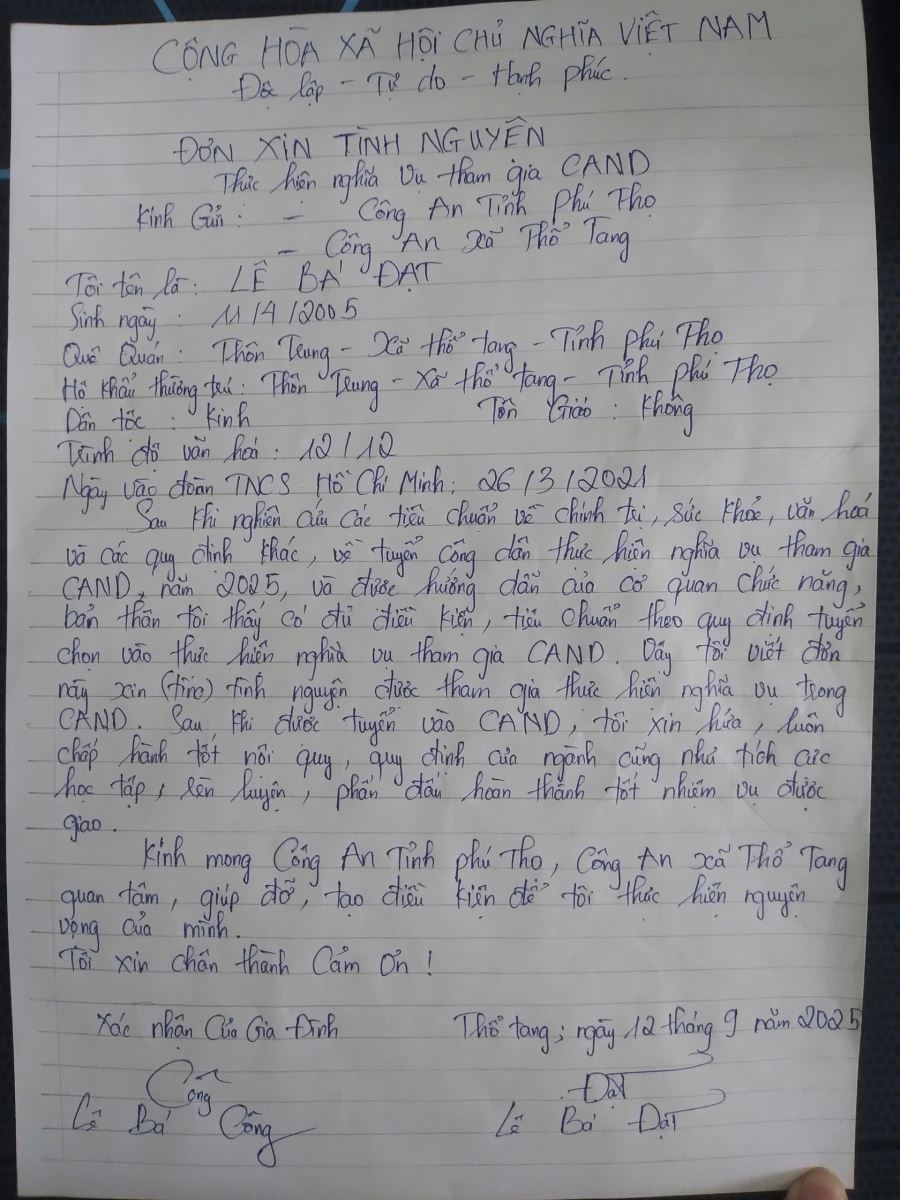 CỘNG HÒA XÃ HỘI CHỦ NGHĨA VIỆT NAM
Độc lập - Tự do - Hạnh phúc.
ĐƠN XIN TÌNH NGUYỆN
Thực hiện nghĩa vụ tham gia CAND
Kính Gửi : - Công An Tỉnh Phú Thọ
- Công An Xã Thổ Tang
Tôi tên là : LÊ BÁ ĐẠT
Sinh ngày : 11/4/2005
Quê Quán : Thôn Trung - Xã thổ tang - Tỉnh phú Thọ
Hộ khẩu thường trú : Thôn Trung - Xã thổ tang - Tỉnh phú Thọ
Dân tộc : Kinh Tôn Giáo : Không
Trình độ văn hoá : 12/12
Ngày vào đoàn TNCS Hồ Chí Minh : 26/3/2021
Sau khi nghiên cứu các tiêu chuẩn về chính trị, sức khoẻ, văn hoá
và các quy định khác, về tuyển công dân thực hiện nghĩa vụ tham gia
CAND, năm 2025, và được hướng dẫn của cơ quan chức năng,
bản thân tôi thấy có đủ điều kiện, tiêu chuẩn theo quy định tuyển
chọn vào thực hiện nghĩa vụ tham gia CAND. Vậy tôi viết đơn
này xin (tình) tình nguyện được tham gia thực hiện nghĩa vụ trong
CAND. Sau khi được tuyển vào CAND, tôi xin hứa, luôn
chấp hành tốt nội quy, quy định của ngành cũng như tích cực
học tập, rèn luyện, phấn đấu hoàn thành tốt nhiệm vụ được
giao.
Kính mong Công An Tỉnh phú Thọ, Công An xã Thổ Tang
quan tâm, giúp đỡ, tạo điều kiện để tôi thực hiện nguyện
vọng của mình.
Tôi xin chân thành Cảm Ơn !
Xác nhận Của Gia Đình Thổ tang, ngày 12 tháng 9 năm 2025
Công Đạt
Lê Bá Công Lê Bá Đạt